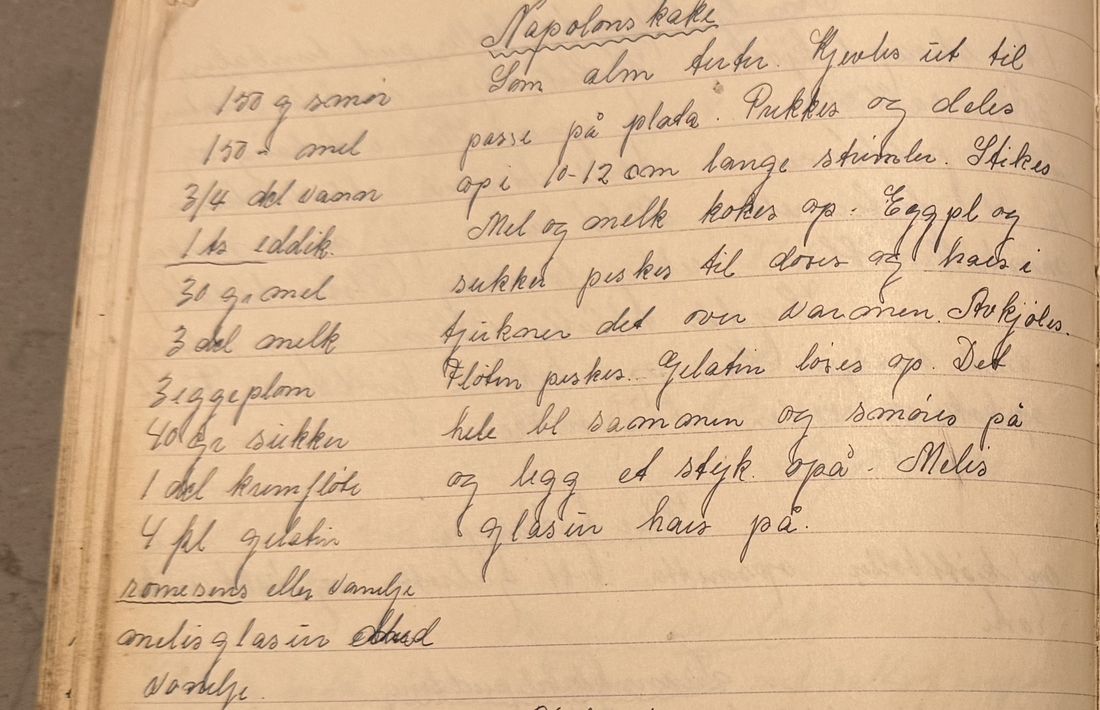 Napolonskake
150 g smør
150 - mel
3/4 del vann
1 ts eddik.
30 gr mel
3 del melk
3 eggeplom
40 gr sukker
1 del kremfløte
4 pl gelatin
romesens eller vanelje
melisglasur
vanelje.
Som alm terter. Kjevles ut til
passe på plada. Prikkes og deles
op i 10-12 cm lange strimler. Stikes
Mel og melk kokes op. Eggpl og
sukker piskes til doses og haes i
tjukner det over varmen. Avkjøles.
Fløten piskes. Gelatin løses op. Det
hele bl sammen og smøres på
og legg et styk. opå. Melis
glasur haes på.